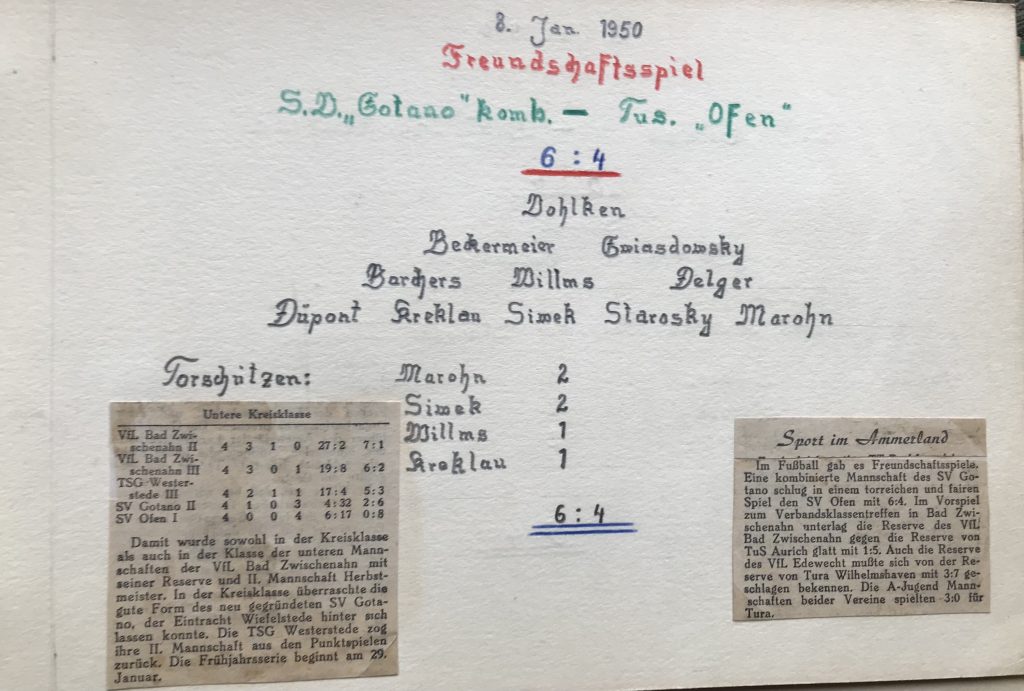 8. Jan. 1950
Freundschaftsspiel
S.V. „Gotano" komb. — Tus. „Ofen"
6 : 4
Dohlken
Beckermeier Gwiasdowsky
Borchers Willms Delger
Düpont Kreklau Simek Starosky Marohn
Torschützen: Marohn 2
Simek 2
Willms 1
Kreklau 1
6 : 4
Untere Kreisklasse
VfL Bad Zwi-
schenahn II 4 3 1 0 27:2 7:1
VfL Bad Zwi-
schenahn III 4 3 0 1 19:8 6:2
TSG Wester-
stede III 4 2 1 1 17:4 5:3
SV Gotano II 4 1 0 3 4:32 2:6
SV Ofen I 4 0 0 4 6:17 0:8
Damit wurde sowohl in der Kreisklasse
als auch in der Klasse der unteren Mann-
schaften der VfL Bad Zwischenahn mit
seiner Reserve und II. Mannschaft Herbst-
meister. In der Kreisklasse überraschte die
gute Form des neu gegründeten SV Gota-
no, der Eintracht Wiefelstede hinter sich
lassen konnte. Die TSG Westerstede zog
ihre II. Mannschaft aus den Punktspielen
zurück. Die Frühjahrsserie beginnt am 29.
Januar.
Sport im Ammerland
Im Fußball gab es Freundschaftsspiele.
Eine kombinierte Mannschaft des SV Go-
tano schlug in einem torreichen und fairen
Spiel den SV Ofen mit 6:4. Im Vorspiel
zum Verbandsklassentreffen in Bad Zwi-
schenahn unterlag die Reserve des VfL
Bad Zwischenahn gegen die Reserve von
TuS Aurich glatt mit 1:5. Auch die Reserve
des VfL Edewecht mußte sich von der Re-
serve von Tura Wilhelmshaven mit 3:7 ge-
schlagen bekennen. Die A-Jugend Mann-
schaften beider Vereine spielten 3:0 für
Tura.